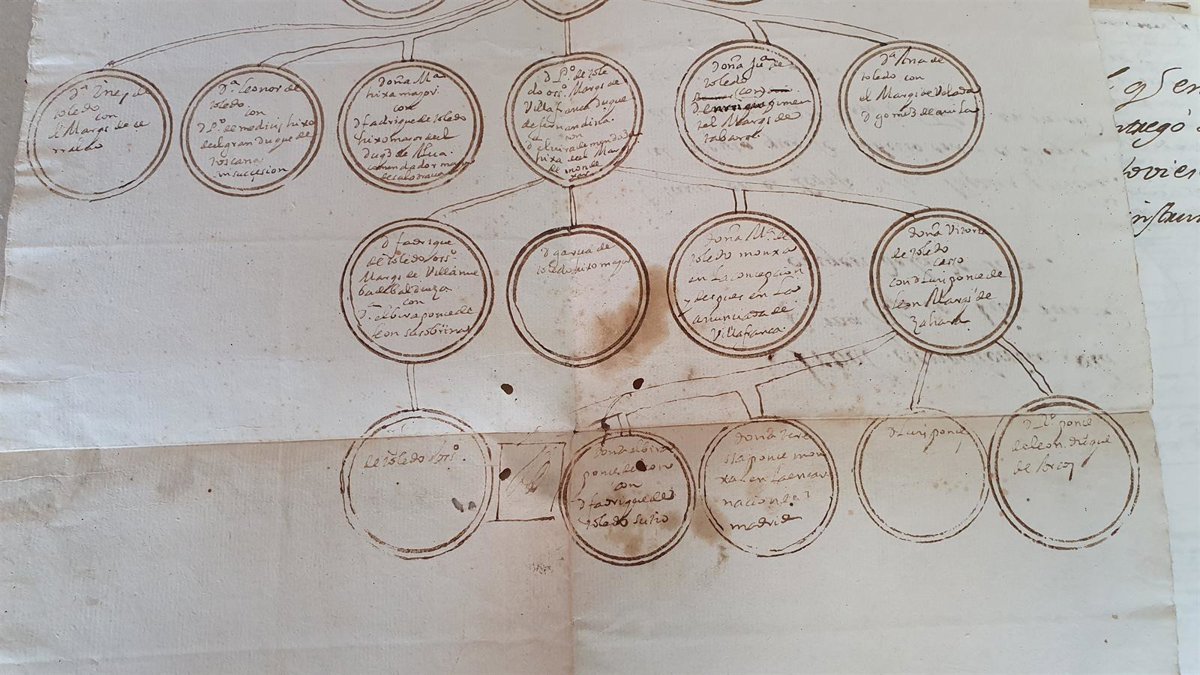 Dª Ynes de
toledo
con
el Marqs de ce
rralbo
Dª leonor de
toledo.
con
D Pº de medicis hixo
del gran Duque de
toscana
sin succesion
doña Mª
hixa mayor
con
D fadrique de toledo
hixo mayor del
duq3 de Alua.
comendador mayor
de calatraua
D Pº de tole
do oss.º Marqs de
Villafranca Duque
de fernandina.
con
Dª eluira de mendoça
hixa del Marqs
de monde
xar
doña Juª de
toledo
con
D gimen
Marqs de
tabara.
Dª Ana de
toledo con
el Marqs de Velada
D gomez de auila
D fadrique
de toledo oss.º
Marqs de Villanue
ba de baldueza
con
Dª elbira ponce de
leon su sobrina
D garcia de
toledo hixo mayor
doña Mª de
toledo monxa
en La concepcion
y despues en La
anunciada de
Villafranca.
doña Vitoria
de toledo
casso
con D Luis ponce de
leon Marqs de
Zahara
de toledo oss.º
doña elbira
ponce de leon
con
D fadrique de
toledo su tio
doña tere
sa ponce mon
xa en la encar
nacion de
madrid
D Luis ponce
D Pº ponce
de leon duque
de Arcos